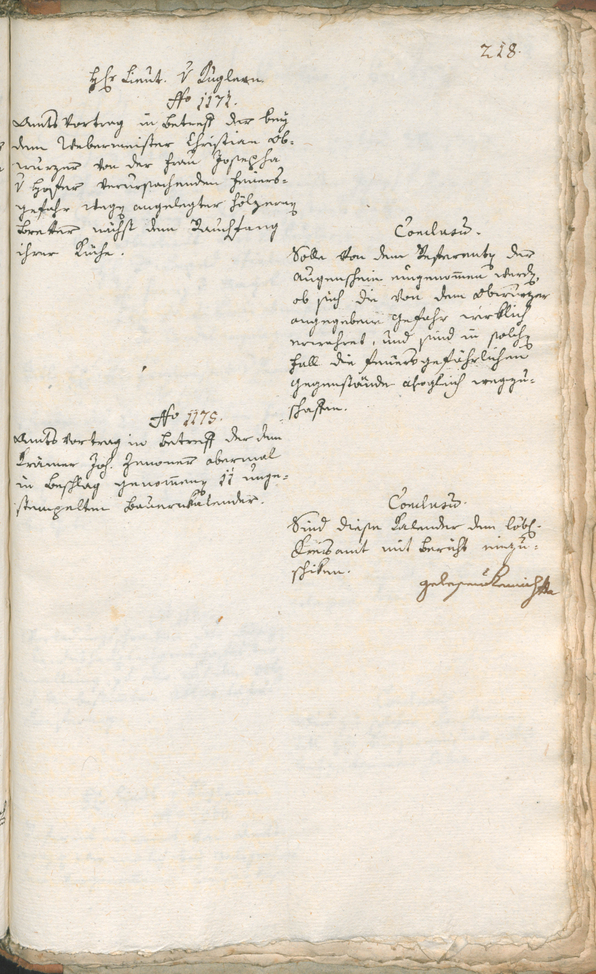 218.
H. Lieut. v Kuglern
No 1174.
Amts Vortrag in Betreff der bey
dem Webermeister Christian Ob-
wurzer von der Frau Josepha
v Hofer verursachenden Feuers-
gefahr wegen angelegter hölzerner
Bretter nächst dem Rauchfang
ihrer Küche.
Conclusum.
Solle von dem Referenten der
Augenschein eingenommen werden,
ob sich die von dem Obwurzer
angegebene Gefahr wirklich
erwahret, und sind in solchem
Fall die Feuersgefährlichen
Gegenstände alsogleich wegzu-
schaffen.
No 1175.
Amts Vortrag in Betreff der dem
Krämer Joh. abermal
in Beschlag genommenen 11 unge-
stempelten Bauernkalender.
Conclusum.
Sind diese Kalender dem löbl.
Kreisamt mit Bericht einzu-
schiken.
gelesen